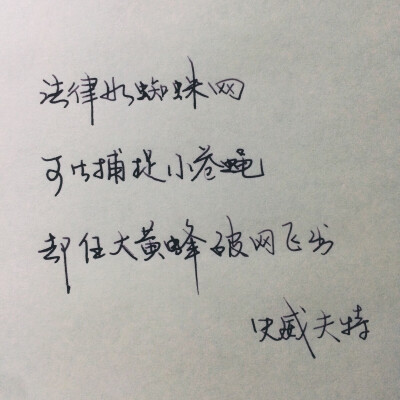 法律如蜘蛛网
可以捕捉小苍蝇
却任大黄蜂破网飞出
史威夫特